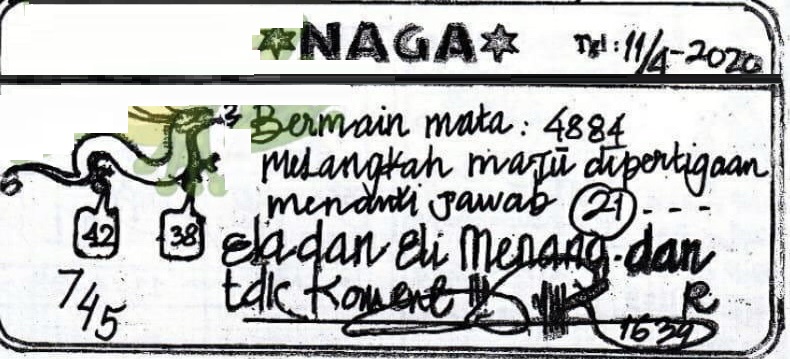 ✡NAGA✡ Tgl: 11/4-2020
3 Bermain mata: 4884
melangkah maju dipertigaan
menanti jawab 21 - - -
42 38 ela dan eli Menang dan
tdk Koment !!
R
745
1639